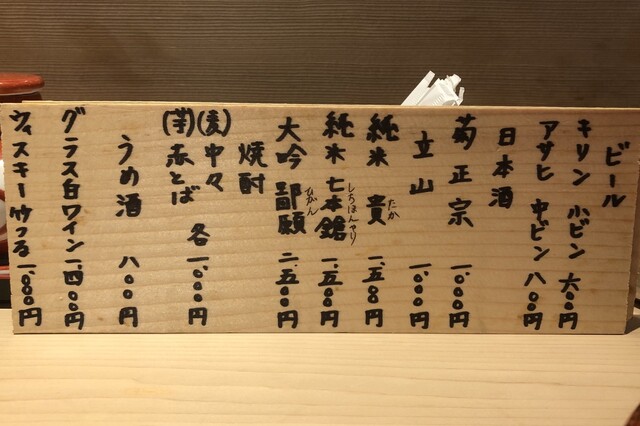 ビール
キリン 小ビン 六〇〇円
アサヒ 中ビン 八〇〇円
日本酒
菊正宗 一、〇〇〇円
立山 一、〇〇〇円
純米 貴 たか 一、五〇〇円
純米 七本鎗 しちほんやり 一、五〇〇円
大吟 鄙願 ひがん 二、五〇〇円
焼酎
(麦) 中々 各 一、〇〇〇円
(芋) 赤とば
うめ酒 八〇〇円
グラス白ワイン 一、四〇〇円
ウィスキー 竹つる 一、〇〇〇円